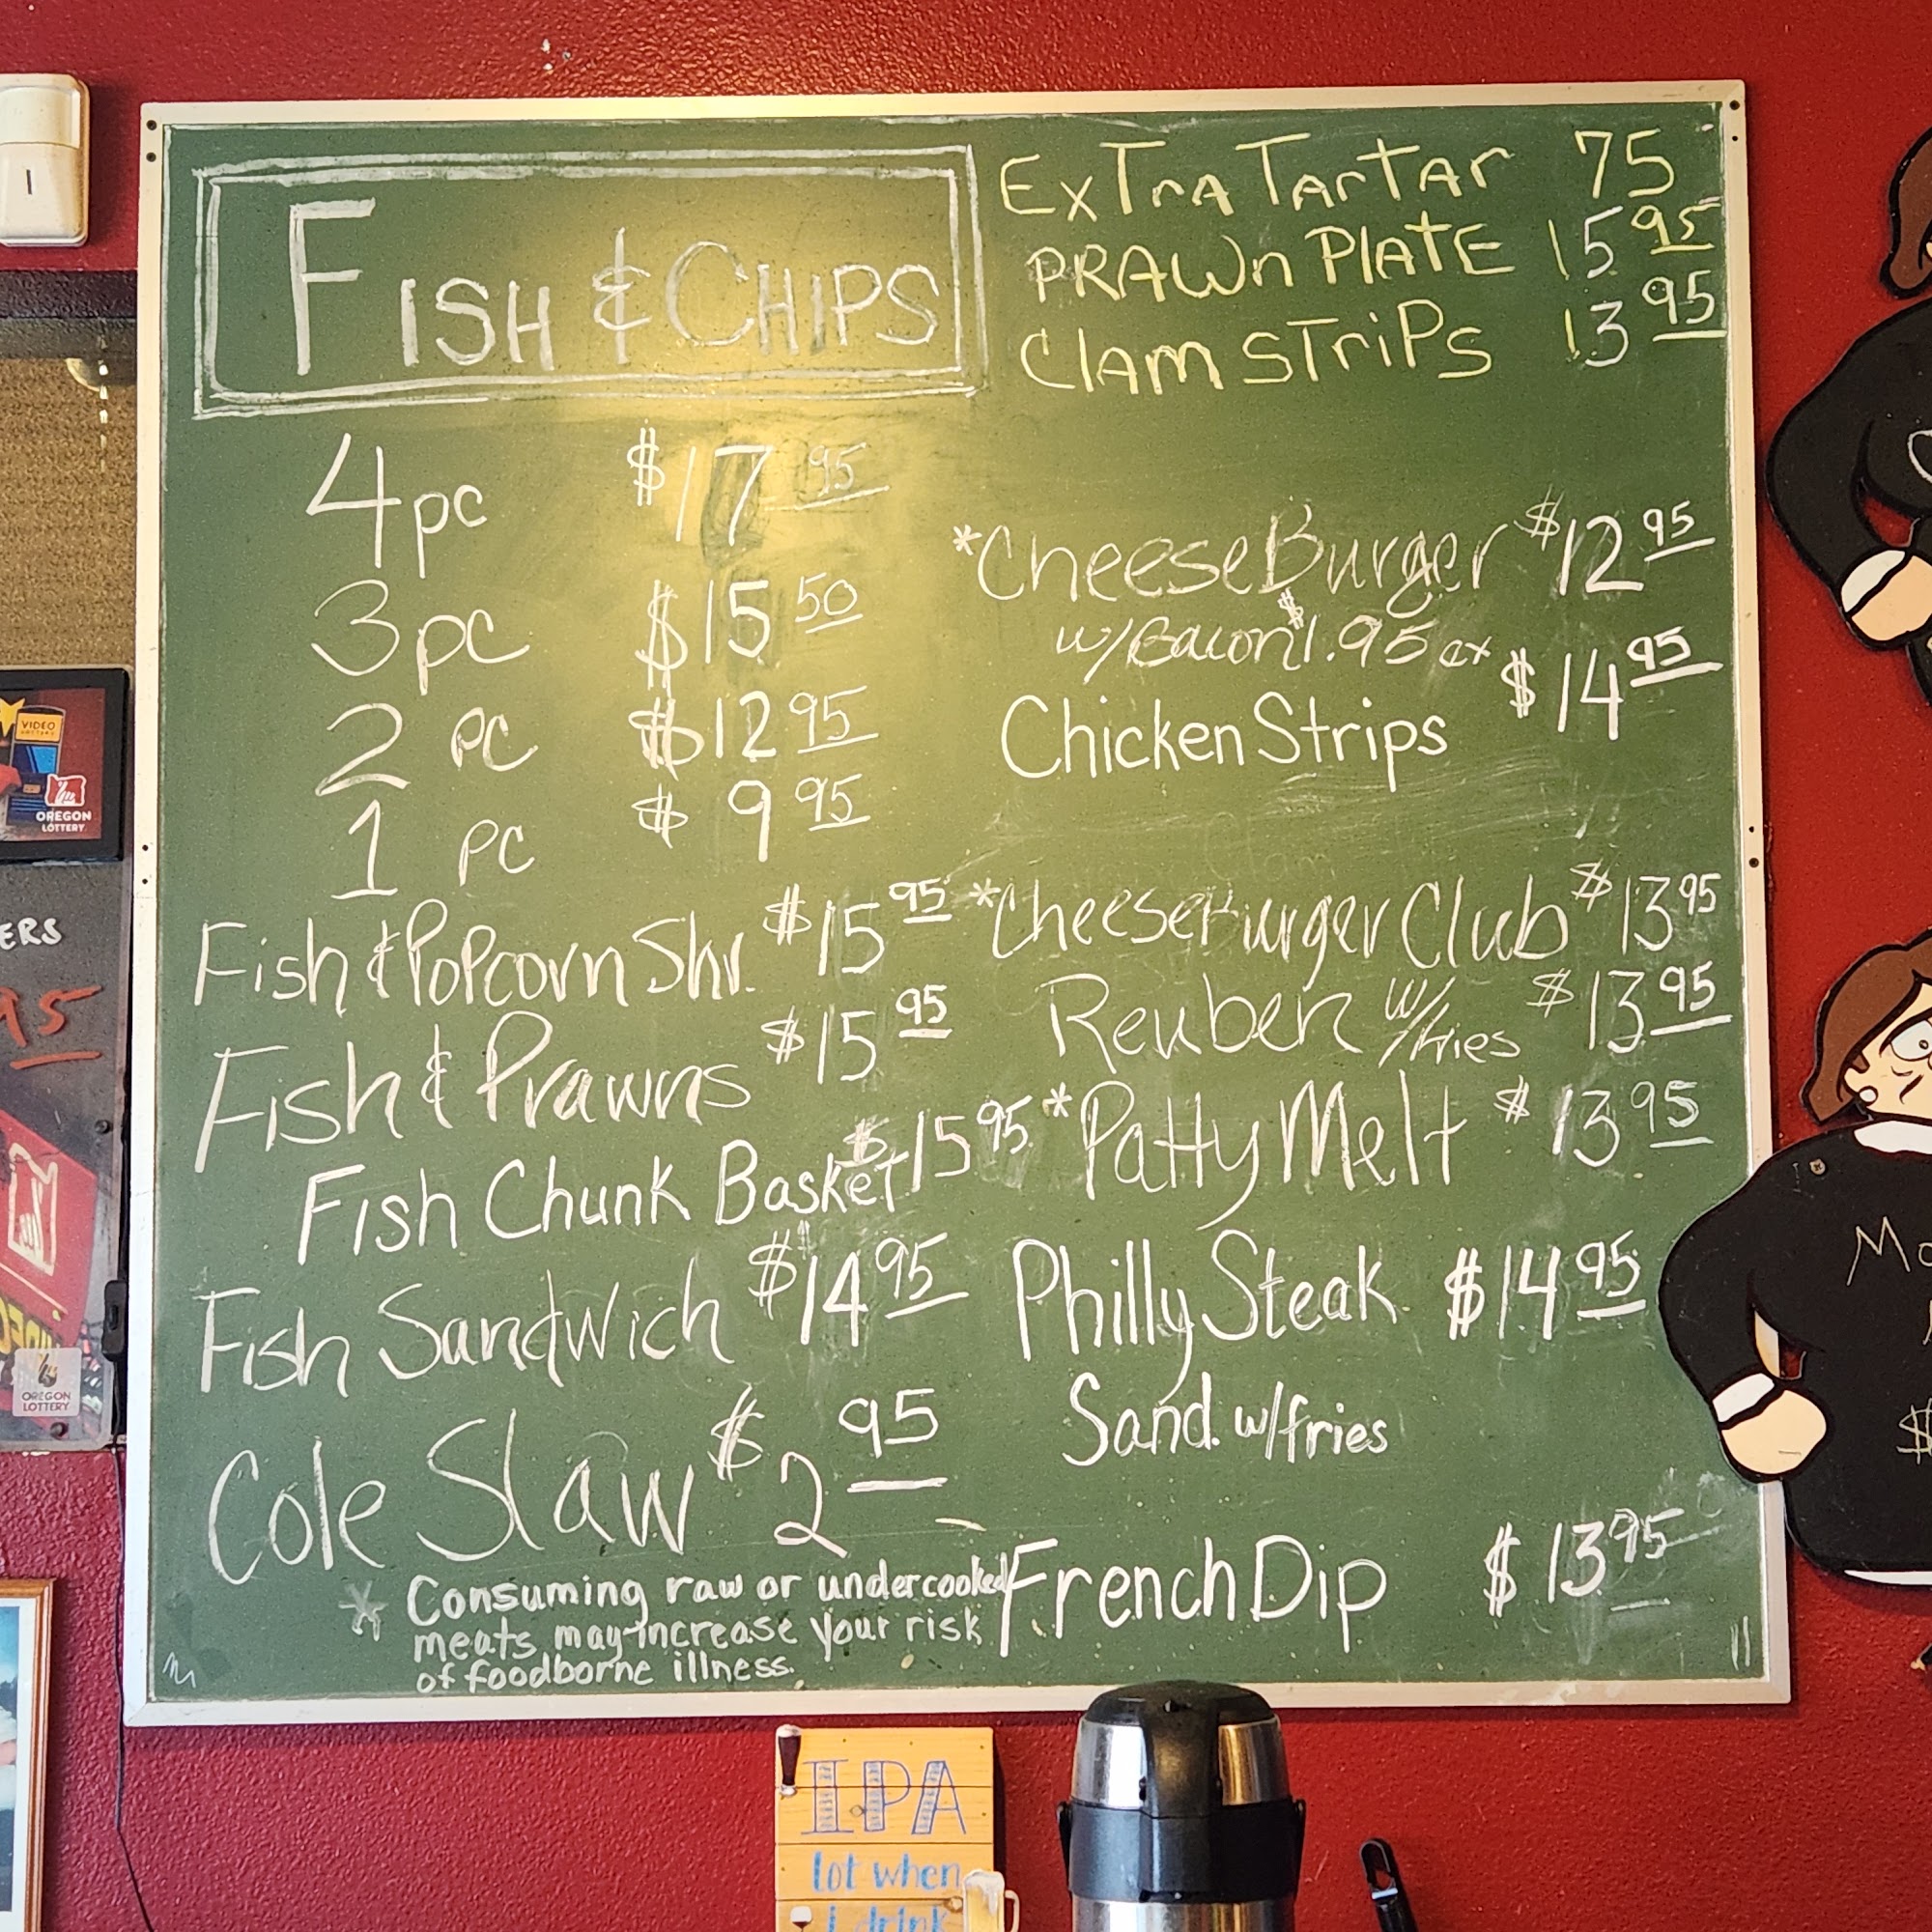 FISH & CHIPS
4 pc $17 95
3 pc $15 50
2 pc $12 95
1 pc $9 95
Fish & Popcorn Shr. $15 95
Fish & Prawns $15 95
Fish Chunk Basket $15 95
Fish Sandwich $14 95
Cole Slaw $2 95
* Consuming raw or undercooked
meats may increase your risk
of foodborne illness.
ExTrA TarTar 75
PRAWn PlATE 15 95
ClAm STriPs 13 95
*CheeseBurger $12 95
w/Bacon $1.95 ex
Chicken Strips $14 95
*CheeseBurger Club $13 95
Reuben w/fries $13 95
*Patty Melt $13 95
Philly Steak $14 95
Sand. w/fries
French Dip $13 95
VIDEO
LOTTERY
OREGON
LOTTERY
ERS
95
OREGON
LOTTERY
Mo
$
IPA
lot when
i drink